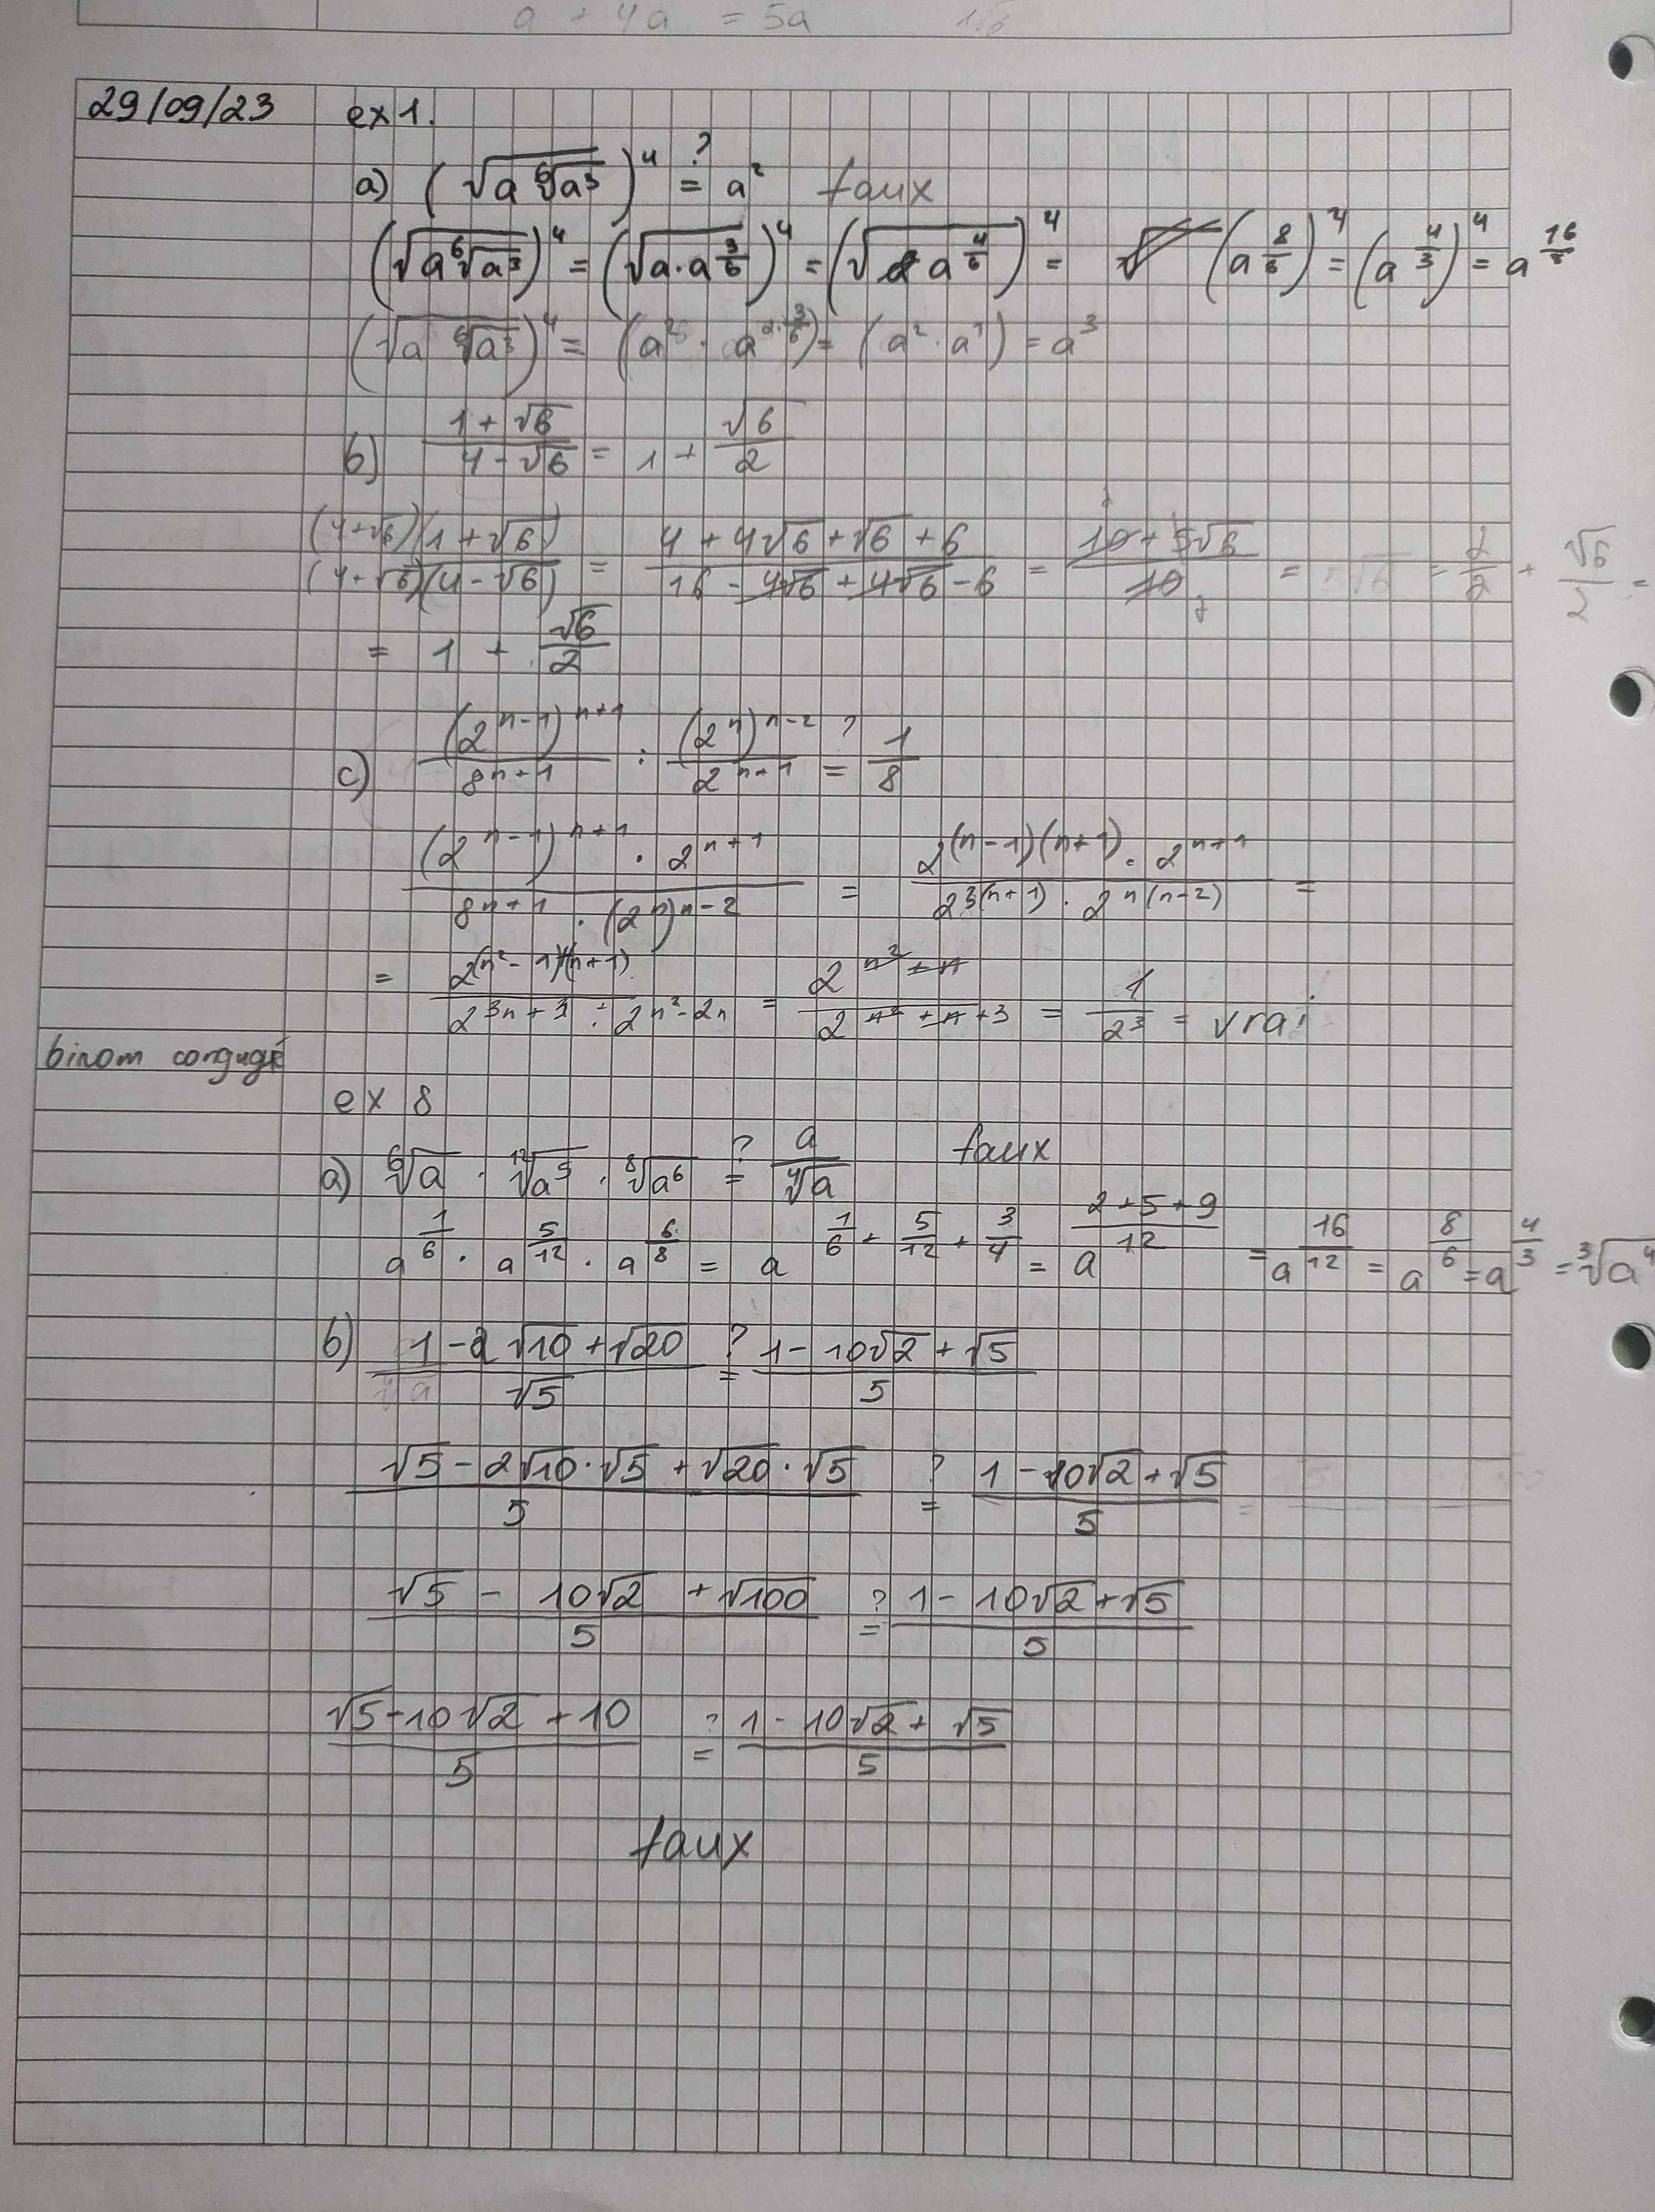 a + 4a = 5a
29/09/23 ex 1.
a) (√(a ⁶√a³))⁴ ?= a² faux
(√(a ⁶√a³))⁴ = (√(a · a^(3/6)))⁴ = (√(a^(4/6)))⁴ = (a^(8/6))⁴ = (a^(4/3))⁴ = a^(16/3)
(√(a ⁶√a³))⁴ = (a² · a^(2·3/6)) = (a² · a¹) = a³
b) (1 + √6)/(4 - √6) = 1 + √6/2
((4+√6)(1 + √6))/((4+√6)(4 - √6)) = (4 + 4√6 + √6 + 6)/(16 - 4√6 + 4√6 - 6) = (10 + 5√6)/10 = = 2/2 + √6/2 =
= 1 + √6/2
c) (2^(n-1))^(n+1)/8^(n+1) : (2^n)^(n-2)/2^(n+1) ?= 1/8
((2^(n-1))^(n+1) · 2^(n+1))/(8^(n+1) · (2^n)^(n-2)) = (2^((n-1)(n+1)) · 2^(n+1))/(2^(3(n+1)) · 2^(n(n-2))) =
= 2^((n²-1)+(n+1))/(2^(3n+3) · 2^(n²-2n)) = 2^(n²+n)/2^(n²+n+3) = 1/2³ = vrai
binom congugé
ex 8
a) ⁶√a · ¹²√a⁵ · ⁸√a⁶ ?= a/⁴√a faux
a^(1/6) · a^(5/12) · a^(6/8) = a^(1/6 + 5/12 + 3/4) = a^((2+5+9)/12) = a^(16/12) = a^(8/6) = a^(4/3) = ³√a⁴
b) (1 - 2√10 + √20)/√5 ?= (1 - 10√2 + √5)/5
(√5 - 2√10·√5 + √20·√5)/5 ?= (1 - 10√2 + √5)/5 =
(√5 - 10√2 + √100)/5 ?= (1 - 10√2 + √5)/5
(√5 - 10√2 + 10)/5 ?= (1 - 10√2 + √5)/5
faux